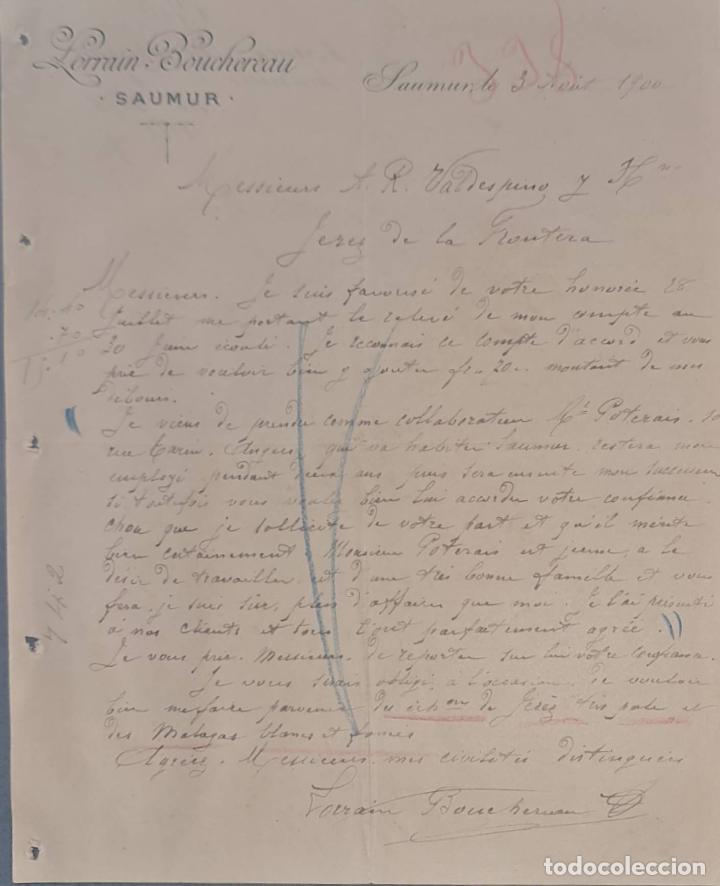 Lorrain-Bouchereau
· SAUMUR ·
Saumur, le 3 Août 1900
338
Messieurs A. R. Valdespino y Hno
Jerez de la Frontera
Messieurs. Je suis favorisé de votre honorée 28
Juillet me portant le relevé de mon compte au
30 Juin écoulé. Je reconnais ce compte d'accord et vous
prie de vouloir bien y ajouter montant de mes
débours.
Je viens de prendre comme collaborateur Mr Poterais
rue Angers, qui va habiter Saumur, restera mon
employé pendant deux ans, puis sera ensuite mon successeur
si toutefois vous voulez bien lui accorder votre confiance
chose que je sollicite de votre part et qu'il mérite
bien certainement. Monsieur Poterais est jeune, a le
désir de travailler, est d'une très bonne famille et vous
fera, je suis sûr, plus d'affaires que moi. Je l'ai présenté
à nos clients et tous l'ont parfaitement agréé.
Je vous prie, Messieurs, de reporter sur lui votre confiance.
Je vous serais obligé, à l'occasion, de vouloir
bien me faire parvenir des échons de Jerez très pâle et
des Malagas blancs et foncés
Agréez, Messieurs, mes civilités distinguées
Lorrain Bouchereau
.70
742
todocoleccion